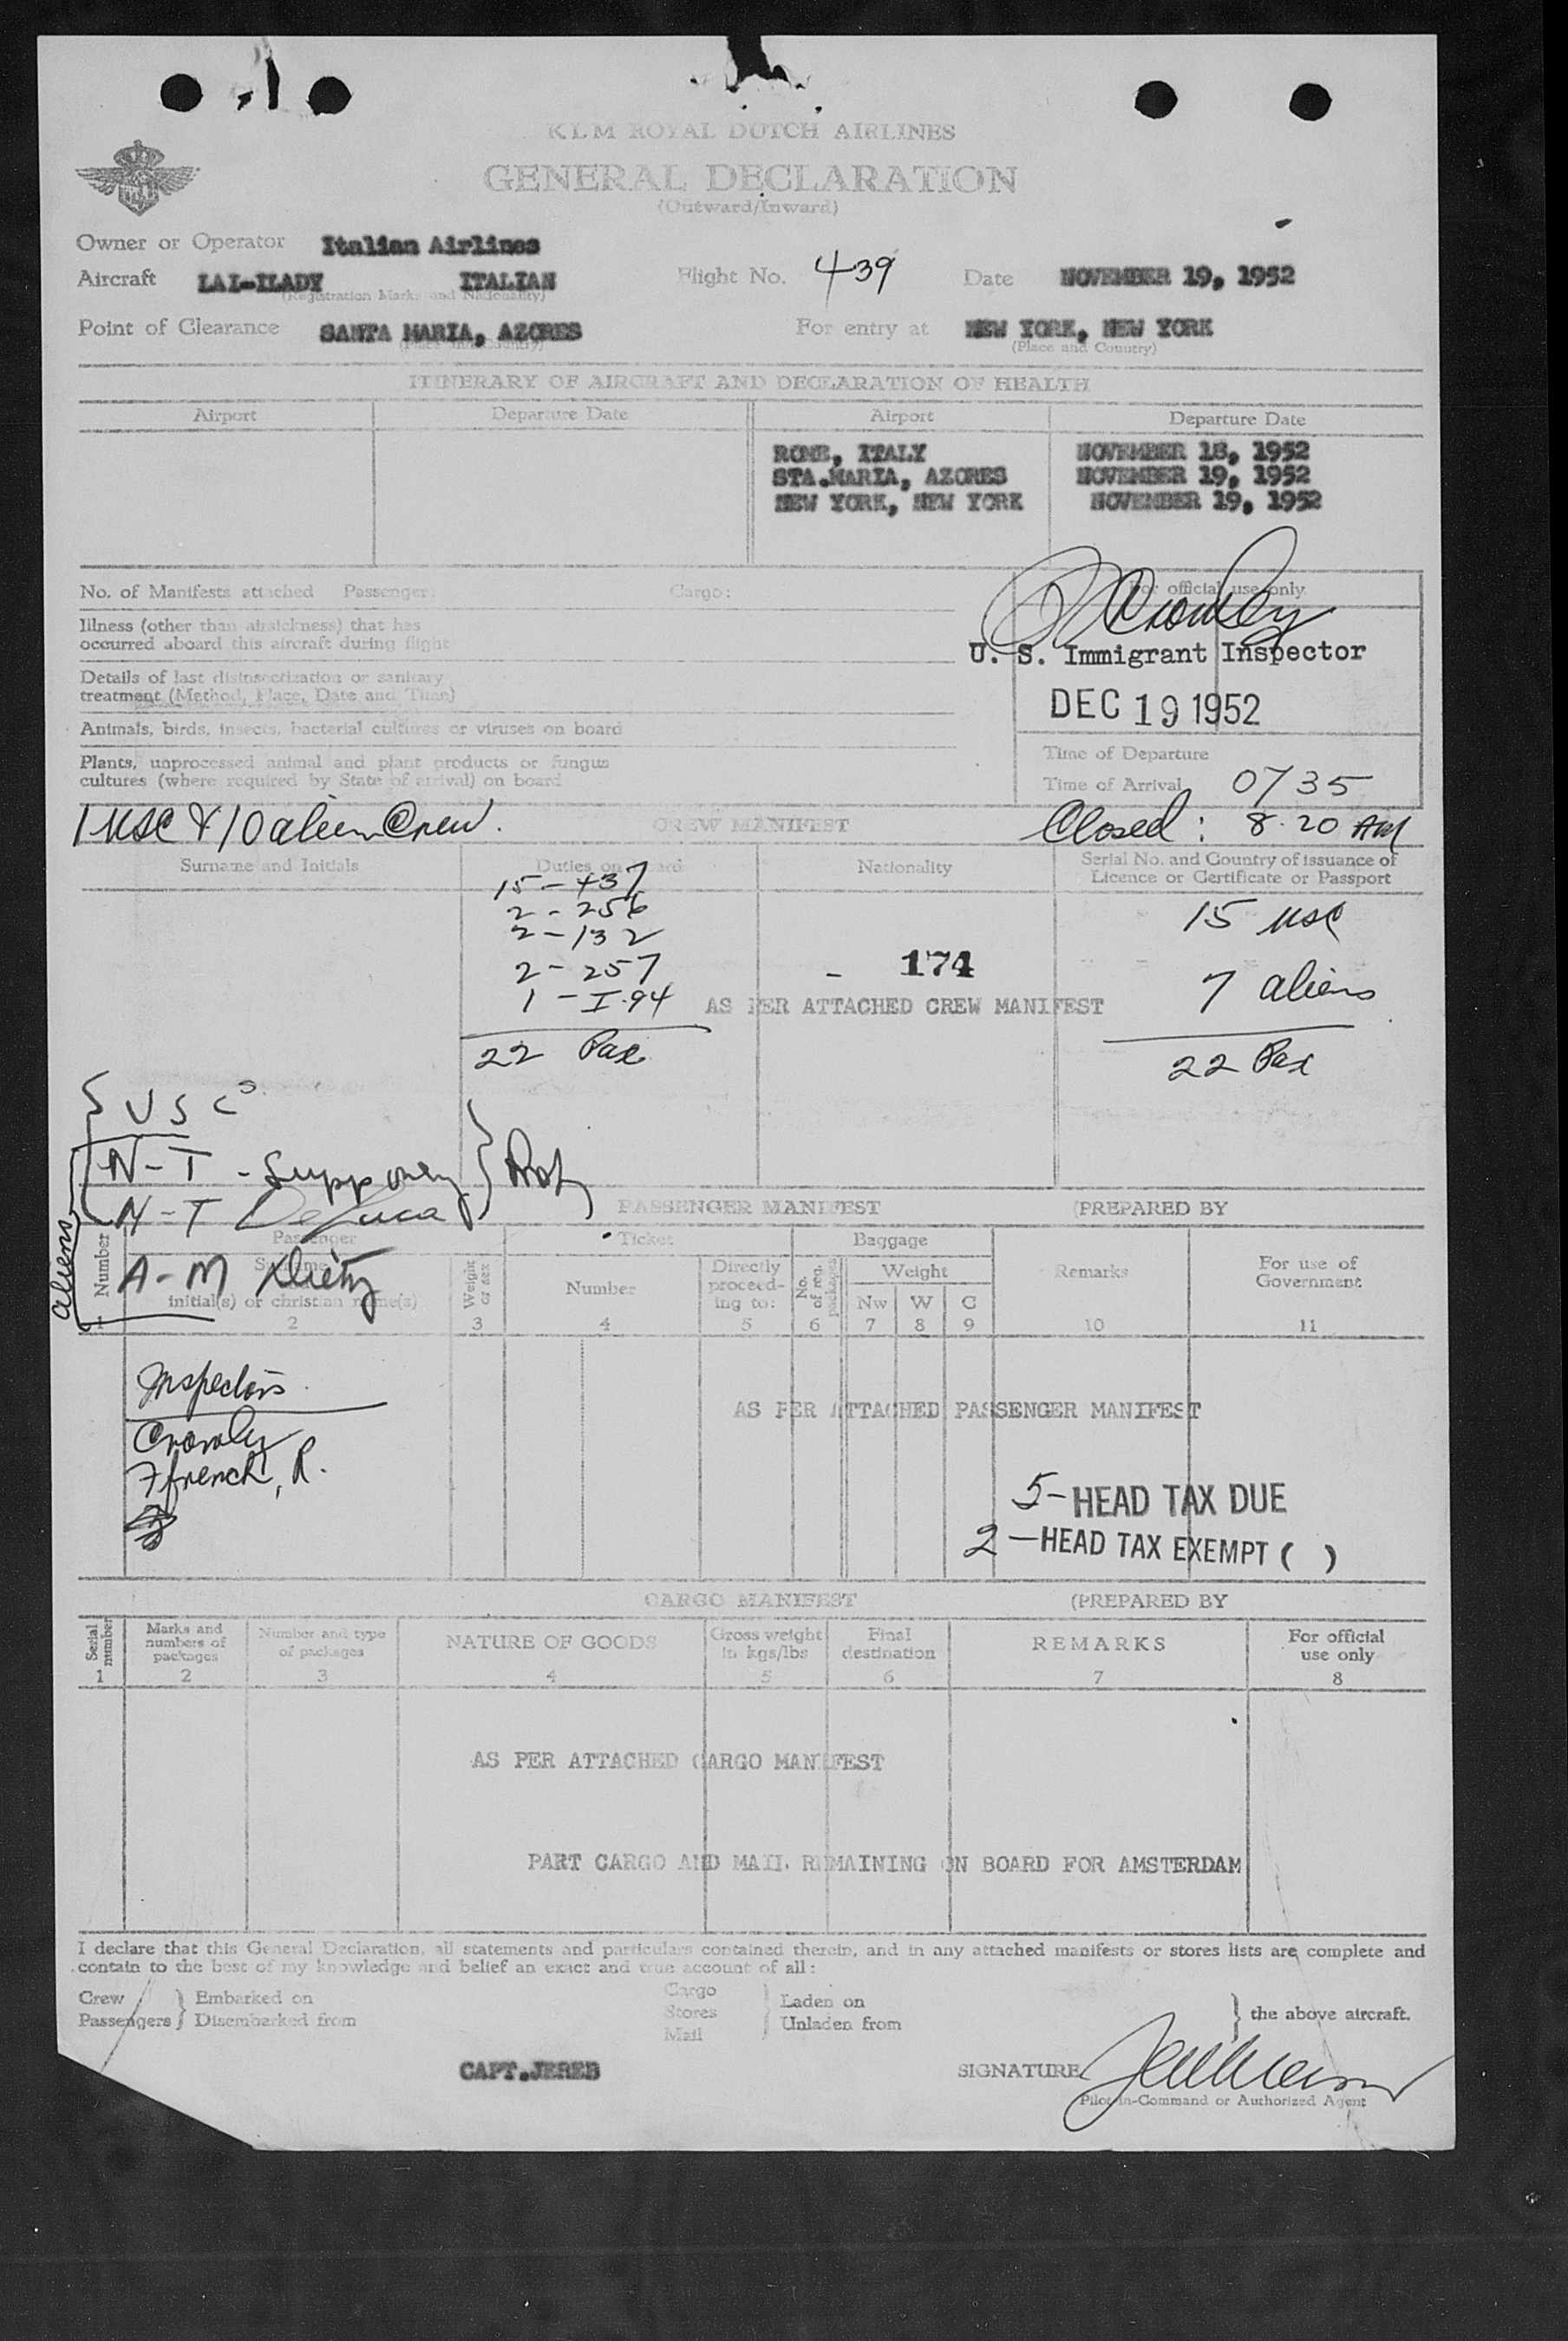 KLM ROYAL DUTCH AIRLINES
GENERAL DECLARATION
(Outward/Inward)
Owner or Operator Italian Airlines
Aircraft LAI-ILADY ITALIAN Flight No. 439 Date NOVEMBER 19, 1952
(Registration Marks and Nationality)
Point of Clearance SANTA MARIA, AZORES For entry at NEW YORK, NEW YORK
(Place and Country) (Place and Country)
ITINERARY OF AIRCRAFT AND DECLARATION OF HEALTH
Airport Departure Date Airport Departure Date
ROME, ITALY NOVEMBER 18, 1952
STA.MARIA, AZORES NOVEMBER 19, 1952
NEW YORK, NEW YORK NOVEMBER 19, 1952
No. of Manifests attached Passenger: Cargo: For official use only
Illness (other than airsickness) that has
occurred aboard this aircraft during flight
Crowley
U. S. Immigrant Inspector
Details of last disinsectization or sanitary
treatment (Method, Place, Date and Time)
DEC 19 1952
Animals, birds, insects, bacterial cultures or viruses on board
Plants, unprocessed animal and plant products or fungus
cultures (where required by State of arrival) on board
Time of Departure
Time of Arrival 0735
1 USC & 10 alien Crew. CREW MANIFEST Closed: 8.20 AM
Surname and Initials Duties on board Nationality Serial No. and Country of issuance of
Licence or Certificate or Passport
15 - 437
2 - 256 15 USC
2 - 132
2 - 257 - 174 7 aliens
1 - I-94 AS PER ATTACHED CREW MANIFEST
22 Pax 22 Pax
USCs
N-T - Supporey
N-T DeLuca
PASSENGER MANIFEST (PREPARED BY
aliens
A-M Dietz
Number Passenger Ticket Baggage Remarks For use of
Government
Surname
initial(s) or christian name(s) Weight
or sex Number Directly
proceed-
ing to: No.
of reg.
packages Weight
Nw W C
1 2 3 4 5 6 7 8 9 10 11
Inspectors
Crowley
Ffrench, R.
AS PER ATTACHED PASSENGER MANIFEST
5-HEAD TAX DUE
2-HEAD TAX EXEMPT ( )
CARGO MANIFEST (PREPARED BY
Serial
number Marks and
numbers of
packages Number and type
of packages NATURE OF GOODS Gross weight
in kgs/lbs Final
destination REMARKS For official
use only
1 2 3 4 5 6 7 8
AS PER ATTACHED CARGO MANIFEST
PART CARGO AND MAIL REMAINING ON BOARD FOR AMSTERDAM
I declare that this General Declaration, all statements and particulars contained therein, and in any attached manifests or stores lists are complete and
contain to the best of my knowledge and belief an exact and true account of all:
Crew Embarked on Cargo Laden on
Passengers Disembarked from Stores Unladen from the above aircraft.
Mail
CAPT.JEREB SIGNATURE
Pilot-in-Command or Authorized Agent